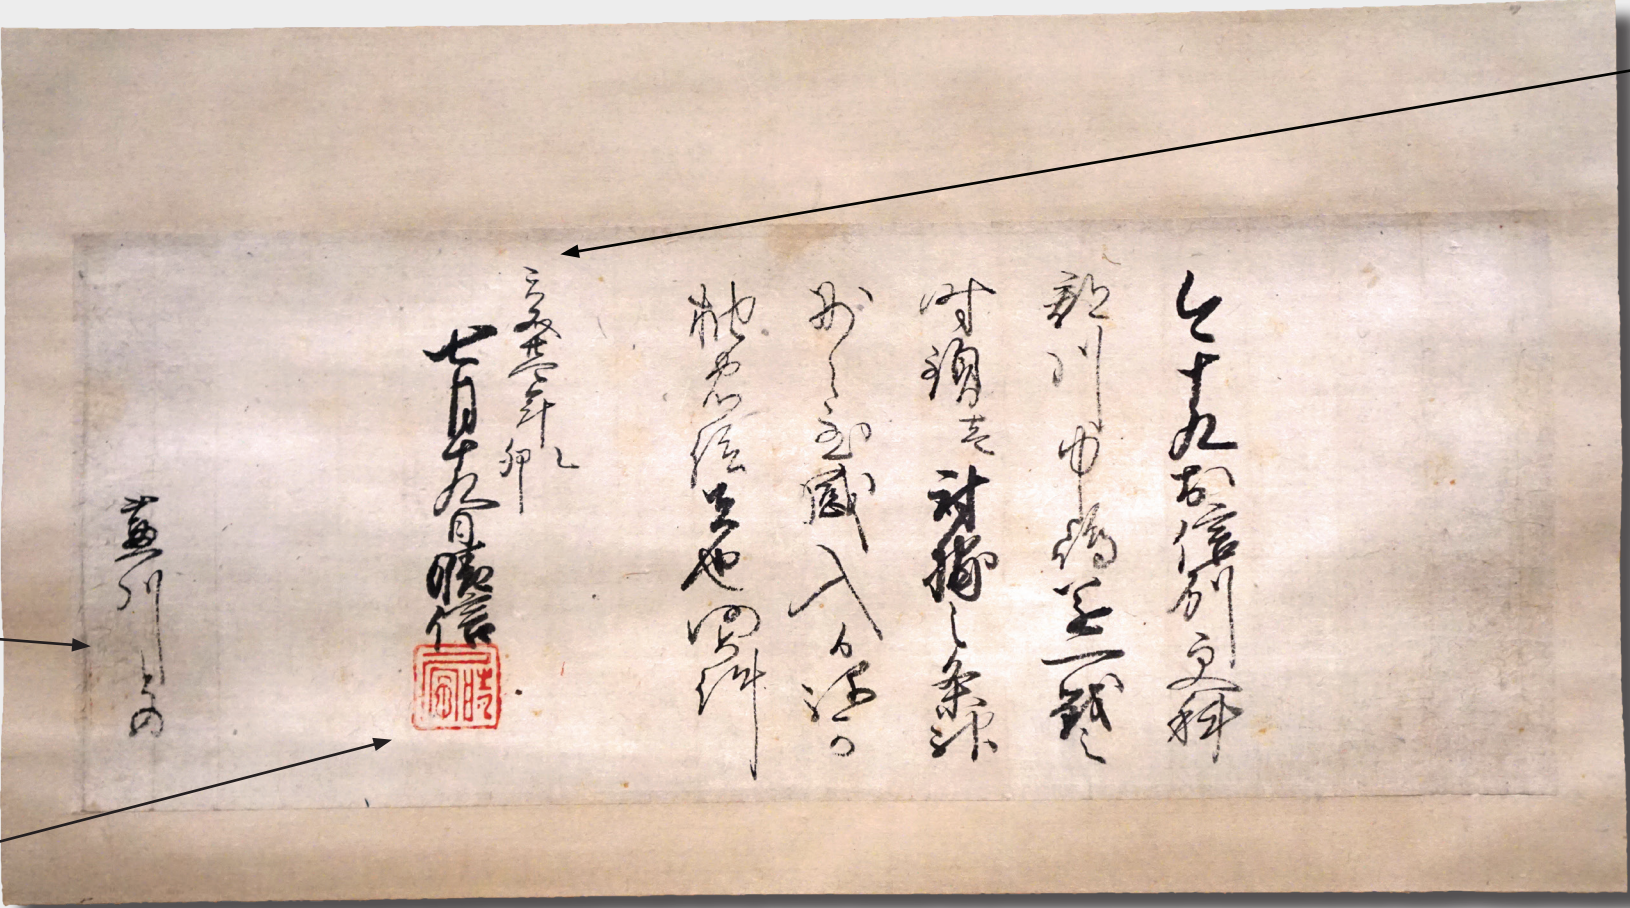 今十九於信州更科
郡川中嶋遂一戦之
時頸壱討捕之条神
妙之至感入候弥可
抽忠信者也仍如件
天文廿四年乙卯
七月十九日晴信
晴信
蘆川との